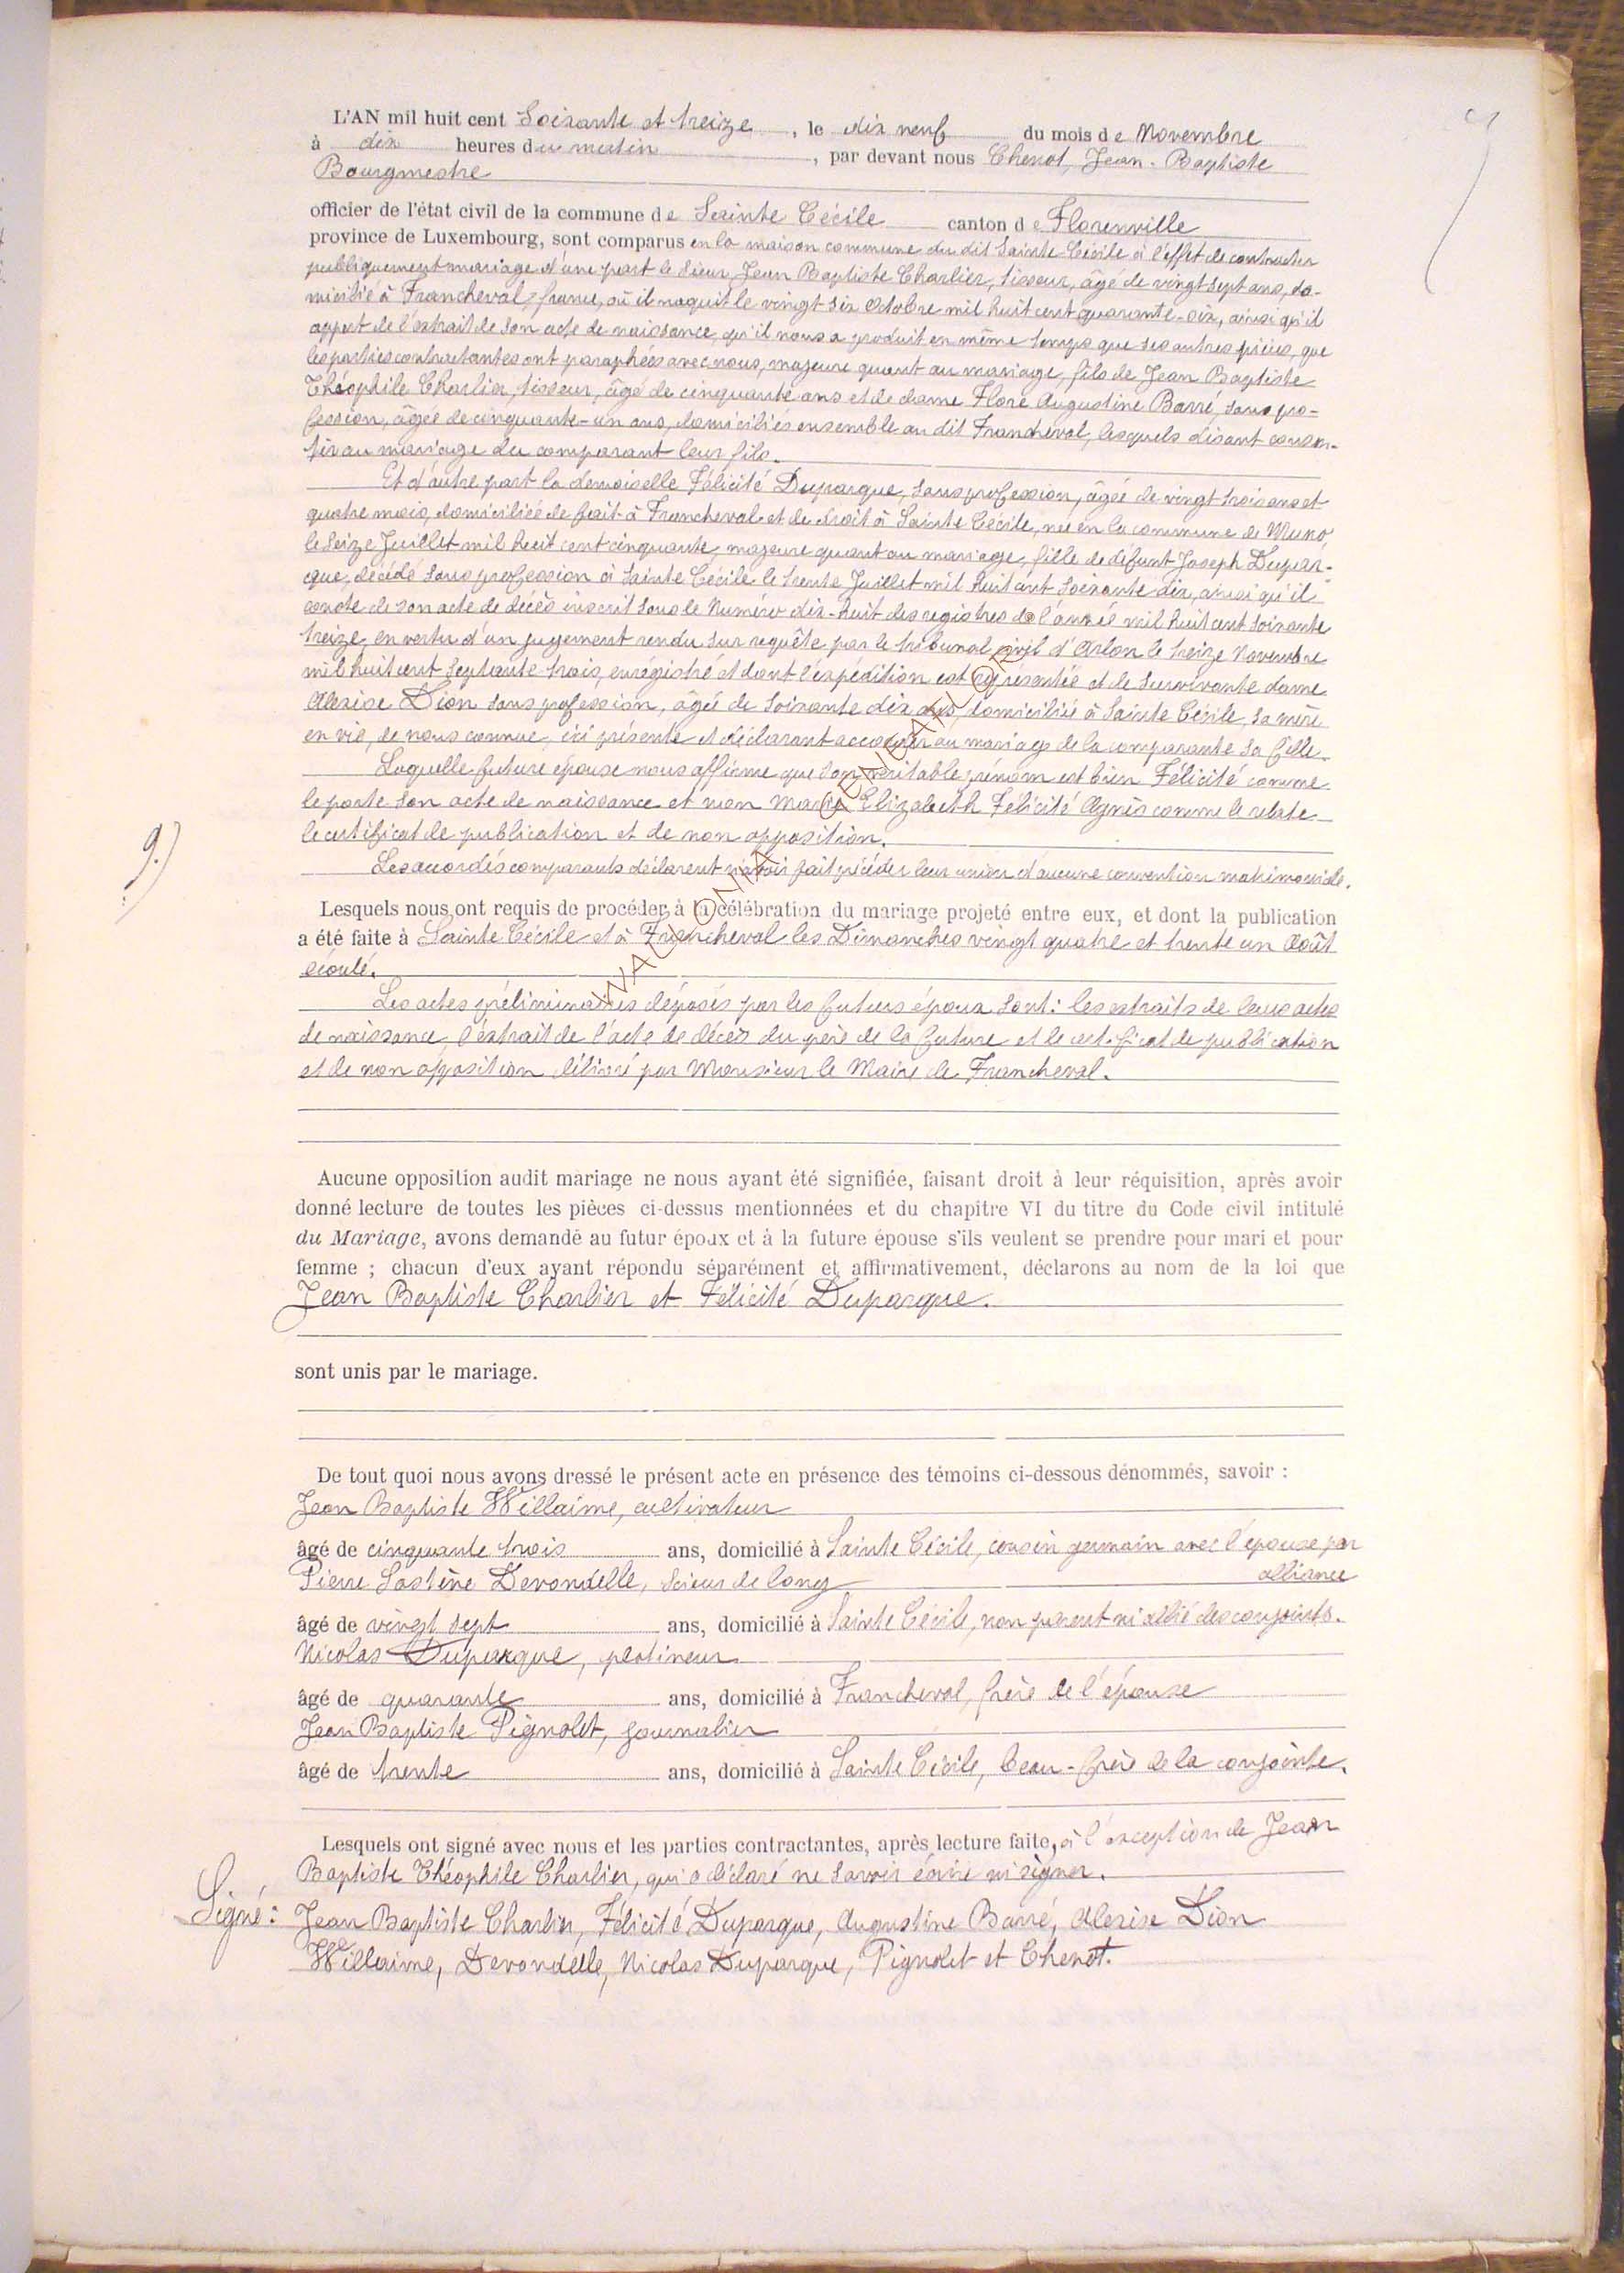 L'AN mil huit cent Soixante et treize, le dix neuf du mois de Novembre
à dix heures du matin, par devant nous Chenot, Jean-Baptiste
Bourgmestre
officier de l'état civil de la commune de Sainte Cécile canton de Florenville
province de Luxembourg, sont comparus en la maison commune du dit Sainte Cécile à l'effet de contracter
publiquement mariage d'une part le sieur Jean Baptiste Charlier, tisseur, âgé de vingt sept ans, do-
micilié à Francheval, france, où il naquit le vingt six octobre mil huit cent quarante-six, ainsi qu'il
appert de l'extrait de son acte de naissance, qu'il nous a produit en même temps que ses autres pièces, que
les parties contractantes ont paraphées avec nous, majeure quant au mariage, fils de Jean Baptiste
Théophile Charlier, tisseur, âgé de cinquante ans et de dame Flore Augustine Barré, sans pro-
fession, âgée de cinquante-un ans, domiciliés ensemble au dit Francheval, lesquels disant consen-
tir au mariage du comparant leur fils.
Et d'autre part la demoiselle Félicité Duparque, sans profession, âgée de vingt trois ans et
quatre mois, domiciliée de fait à Francheval et de droit à Sainte Cécile, née en la commune de Muno,
le Seize Juillet mil huit cent cinquante, majeure quant au mariage, fille de défunt Joseph Dupar-
que, décédé sans profession à Sainte Cécile le trente Juillet mil huit cent soixante dix, ainsi qu'il
conste de son acte de décès inscrit sous le Numéro dix-huit des registres de l'année mil huit cent soixante
treize, en vertu d'un jugement rendu sur requête par le tribunal civil d'Arlon le treize Novembre
mil huit cent septante trois, enrégistré et dont l'expédition est représentée et de survivante dame
Alexise Dion sans profession, âgée de soixante dix ans, domiciliée à Sainte Cécile, sa mère
en vie, de nous connue, ici présente et déclarant accorder au mariage de la comparante sa fille.
Laquelle future épouse nous affirme que son véritable prénom est bien Félicité comme
le porte son acte de naissance et non Marie Elizabeth Félicité Agnès comme le relate
le certificat de publication et de non opposition.
9.)
Les accordés comparants déclarent n'avoir fait précéder leur union d'aucune convention matrimoniale.
Lesquels nous ont requis de procéder à la célébration du mariage projeté entre eux, et dont la publication
a été faite à Sainte Cécile et à Francheval les Dimanches vingt quatre et trente un Août
écoulé.
Les actes préliminaires déposés par les futurs époux sont: les extraits de leurs actes
de naissance, l'extrait de l'acte de décès du père de la future et le certificat de publication
et de non opposition délivré par Monsieur le Maire de Francheval.
Aucune opposition audit mariage ne nous ayant été signifiée, faisant droit à leur réquisition, après avoir
donné lecture de toutes les pièces ci-dessus mentionnées et du chapitre VI du titre du Code civil intitulé
du Mariage, avons demandé au futur époux et à la future épouse s'ils veulent se prendre pour mari et pour
femme ; chacun d'eux ayant répondu séparément et affirmativement, déclarons au nom de la loi que
Jean Baptiste Charlier et Félicité Duparque.
sont unis par le mariage.
De tout quoi nous avons dressé le présent acte en présence des témoins ci-dessous dénommés, savoir :
Jean Baptiste Willaime, cultivateur
âgé de cinquante trois ans, domicilié à Sainte Cécile, cousin germain avec l'épouse par
alliance
Pierre Sostène Devondelle, scieur de long
âgé de vingt sept ans, domicilié à Sainte Cécile, non parent ni allié des conjoints.
Nicolas Duparque, platineur
âgé de quarante ans, domicilié à Francheval, frère de l'épouse
Jean Baptiste Pignolet, journalier
âgé de trente ans, domicilié à Sainte Cécile, beau-frère de la conjointe.
Lesquels ont signé avec nous et les parties contractantes, après lecture faite, à l'exception de Jean
Baptiste Théophile Charlier, qui a déclaré ne savoir écrire ni signer.
Signé : Jean Baptiste Charlier, Félicité Duparque, Augustine Barré, Alexise Dion
Willaime, Devondelle, Nicolas Duparque, Pignolet et Chenot.